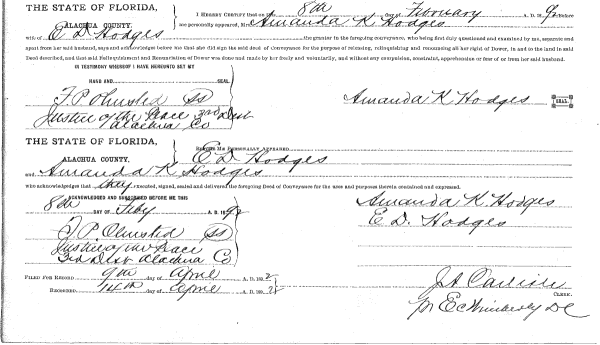 THE STATE OF FLORIDA,
ALACHUA COUNTY.
I HEREBY CERTIFY that on the 8th day of February A. D. 1892 before
me personally appeared, Mrs. Amanda K Hodges
wife of E D Hodges the grantor in the foregoing conveyance, who being first duly questioned and examined by me, separate and
apart from her said husband, says and acknowledges before that she did sign the said deed of Conveyance for the purpose of releasing, relinquishing and renouncing all her right of Dower, in and to the land in said
Deed described, and that said Relinquishment and Renunciation of Dower was done and made by her freely and voluntarily, and without any compulsion, constraint, apprehension or fear of or from her said husband.
IN TESTIMONY WHEREOF I HAVE HEREUNTO SET MY
HAND AND SEAL.
F. P. Olmsted SS
Amanda K Hodges SEAL.
Justice of the Peace 3rd Dist
Alachua Co
THE STATE OF FLORIDA,
ALACHUA COUNTY,
BEFORE ME PERSONALLY APPEARED E D Hodges
and Amanda K Hodges
who acknowledges that they executed, signed, sealed and delivered the foregoing Deed of Conveyance for the uses and purposes therein contained and expressed.
ACKNOWLEDGED AND SUBSCRIBED BEFORE ME THIS
8th DAY OF Feby A. D. 1892
Amanda K. Hodges
E D. Hodges
F. P. Olmsted SS
Justice of the Peace
3rd Dist Alachua Co
FILED FOR RECORD 9th day of April A. D. 1892
RECORDED 14th day of April A. D. 1892
J A Carlisle
CLERK.
Pr E C Wimberly DC